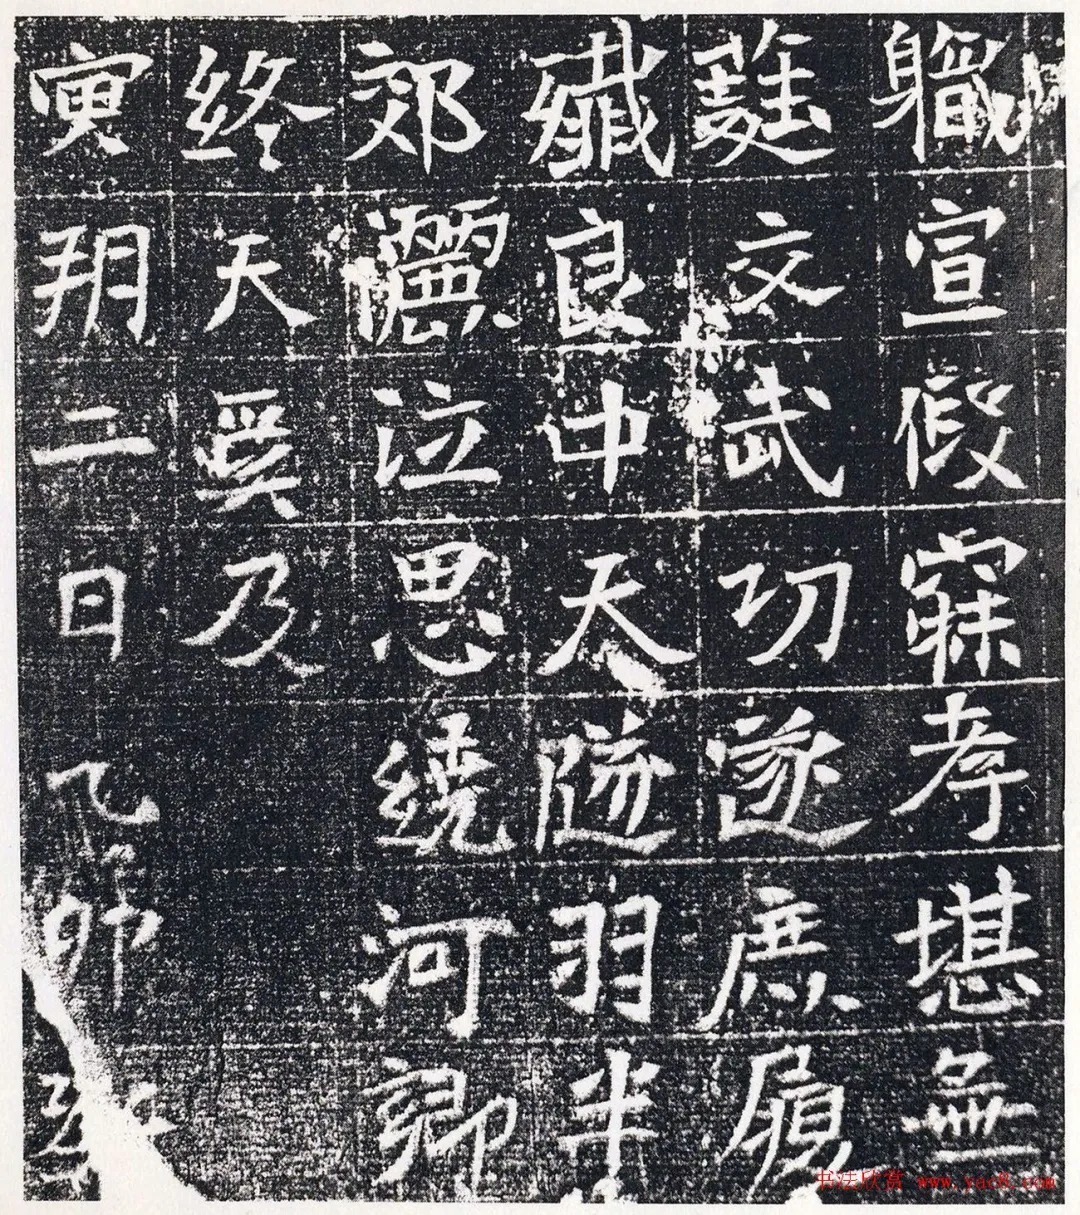 軄宣假寐孝堪無
難文武功遂庶
殲良中天隧羽半
郊灑泣思繞河卿
終天奚及
寅朔二日乙卯
书法欣赏 www.yac8.com